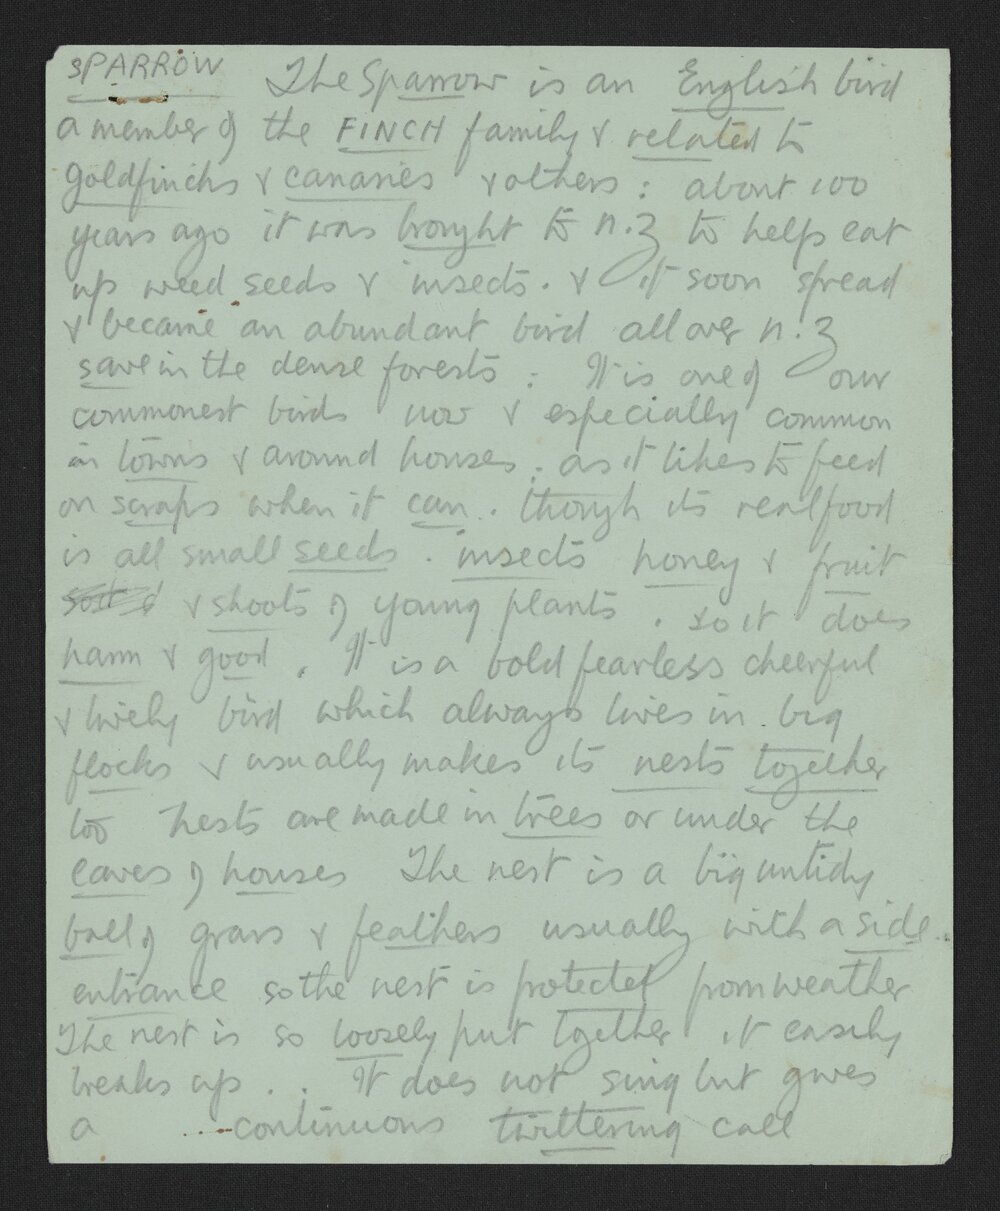 SPARROW The Sparrow is an English bird
a member of the FINCH family & related to
goldfinchs & canaries & others : about 100
years ago it was bought to n.z to help eat
up weed seeds & insects. & it soon spread
& became an abundant bird all over n.z
save in the dense forests : It is one of our
commonest birds now & especially common
in towns & around houses. as it likes to feed
on scraps when it can. though its real food
is all small seeds. insects honey & fruit
& shoots of young plants. so it does
harm & good. It is a bold fearless cheerful
& lively bird which always lives in big
flocks & usually makes its nests together
too nests are made in trees or under the
eaves of houses The nest is a big untidy
ball of grass & feathers usually with a side
entrance so the nest is protected from weather
The nest is so loosely put together it easily
breaks up. . It does not sing but gives
a continuous twittering call